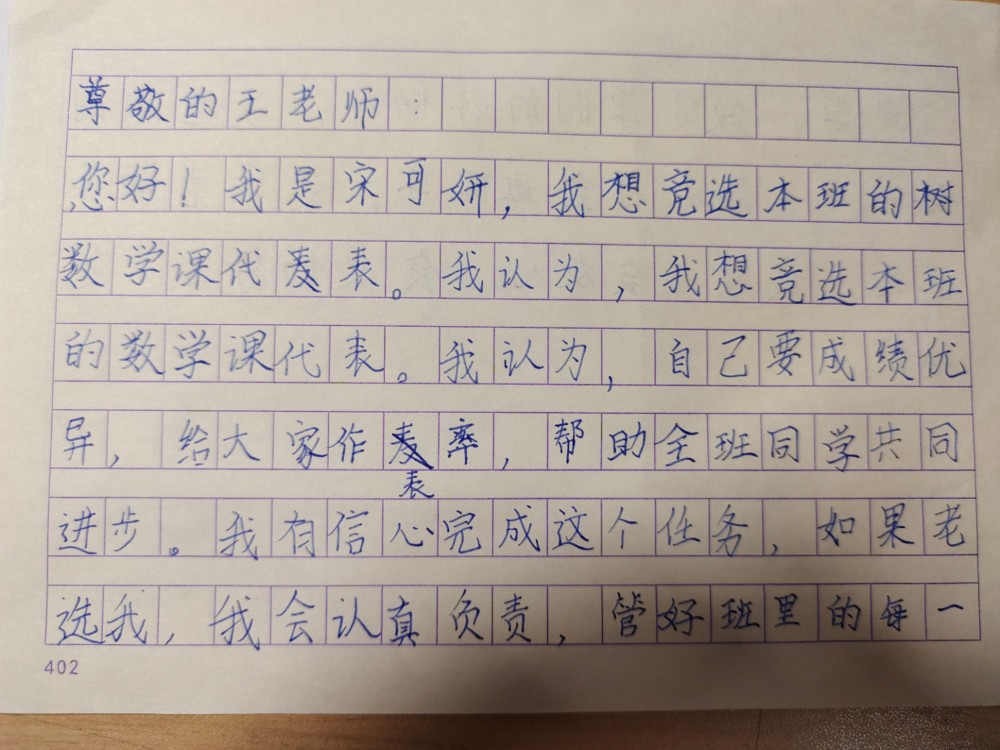 尊敬的王老师：
您好！我是宋可妍，我想竞选本班的树
数学课代麦表。我认为，我想竞选本班
的数学课代表。我认为，自己要成绩优
异，给大家作麦率，帮助全班同学共同
表
进步。我有信心完成这个任务，如果老
选我，我会认真负责，管好班里的每一
402